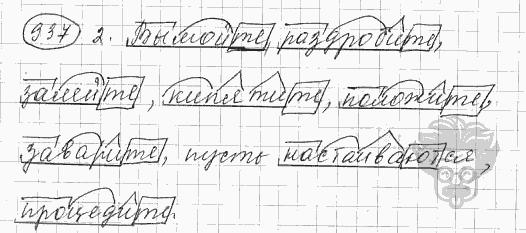 337 2. Вымойте, раздробите,
залейте, кипятите, положите,
заварите, пусть настаиваются,
процедите.